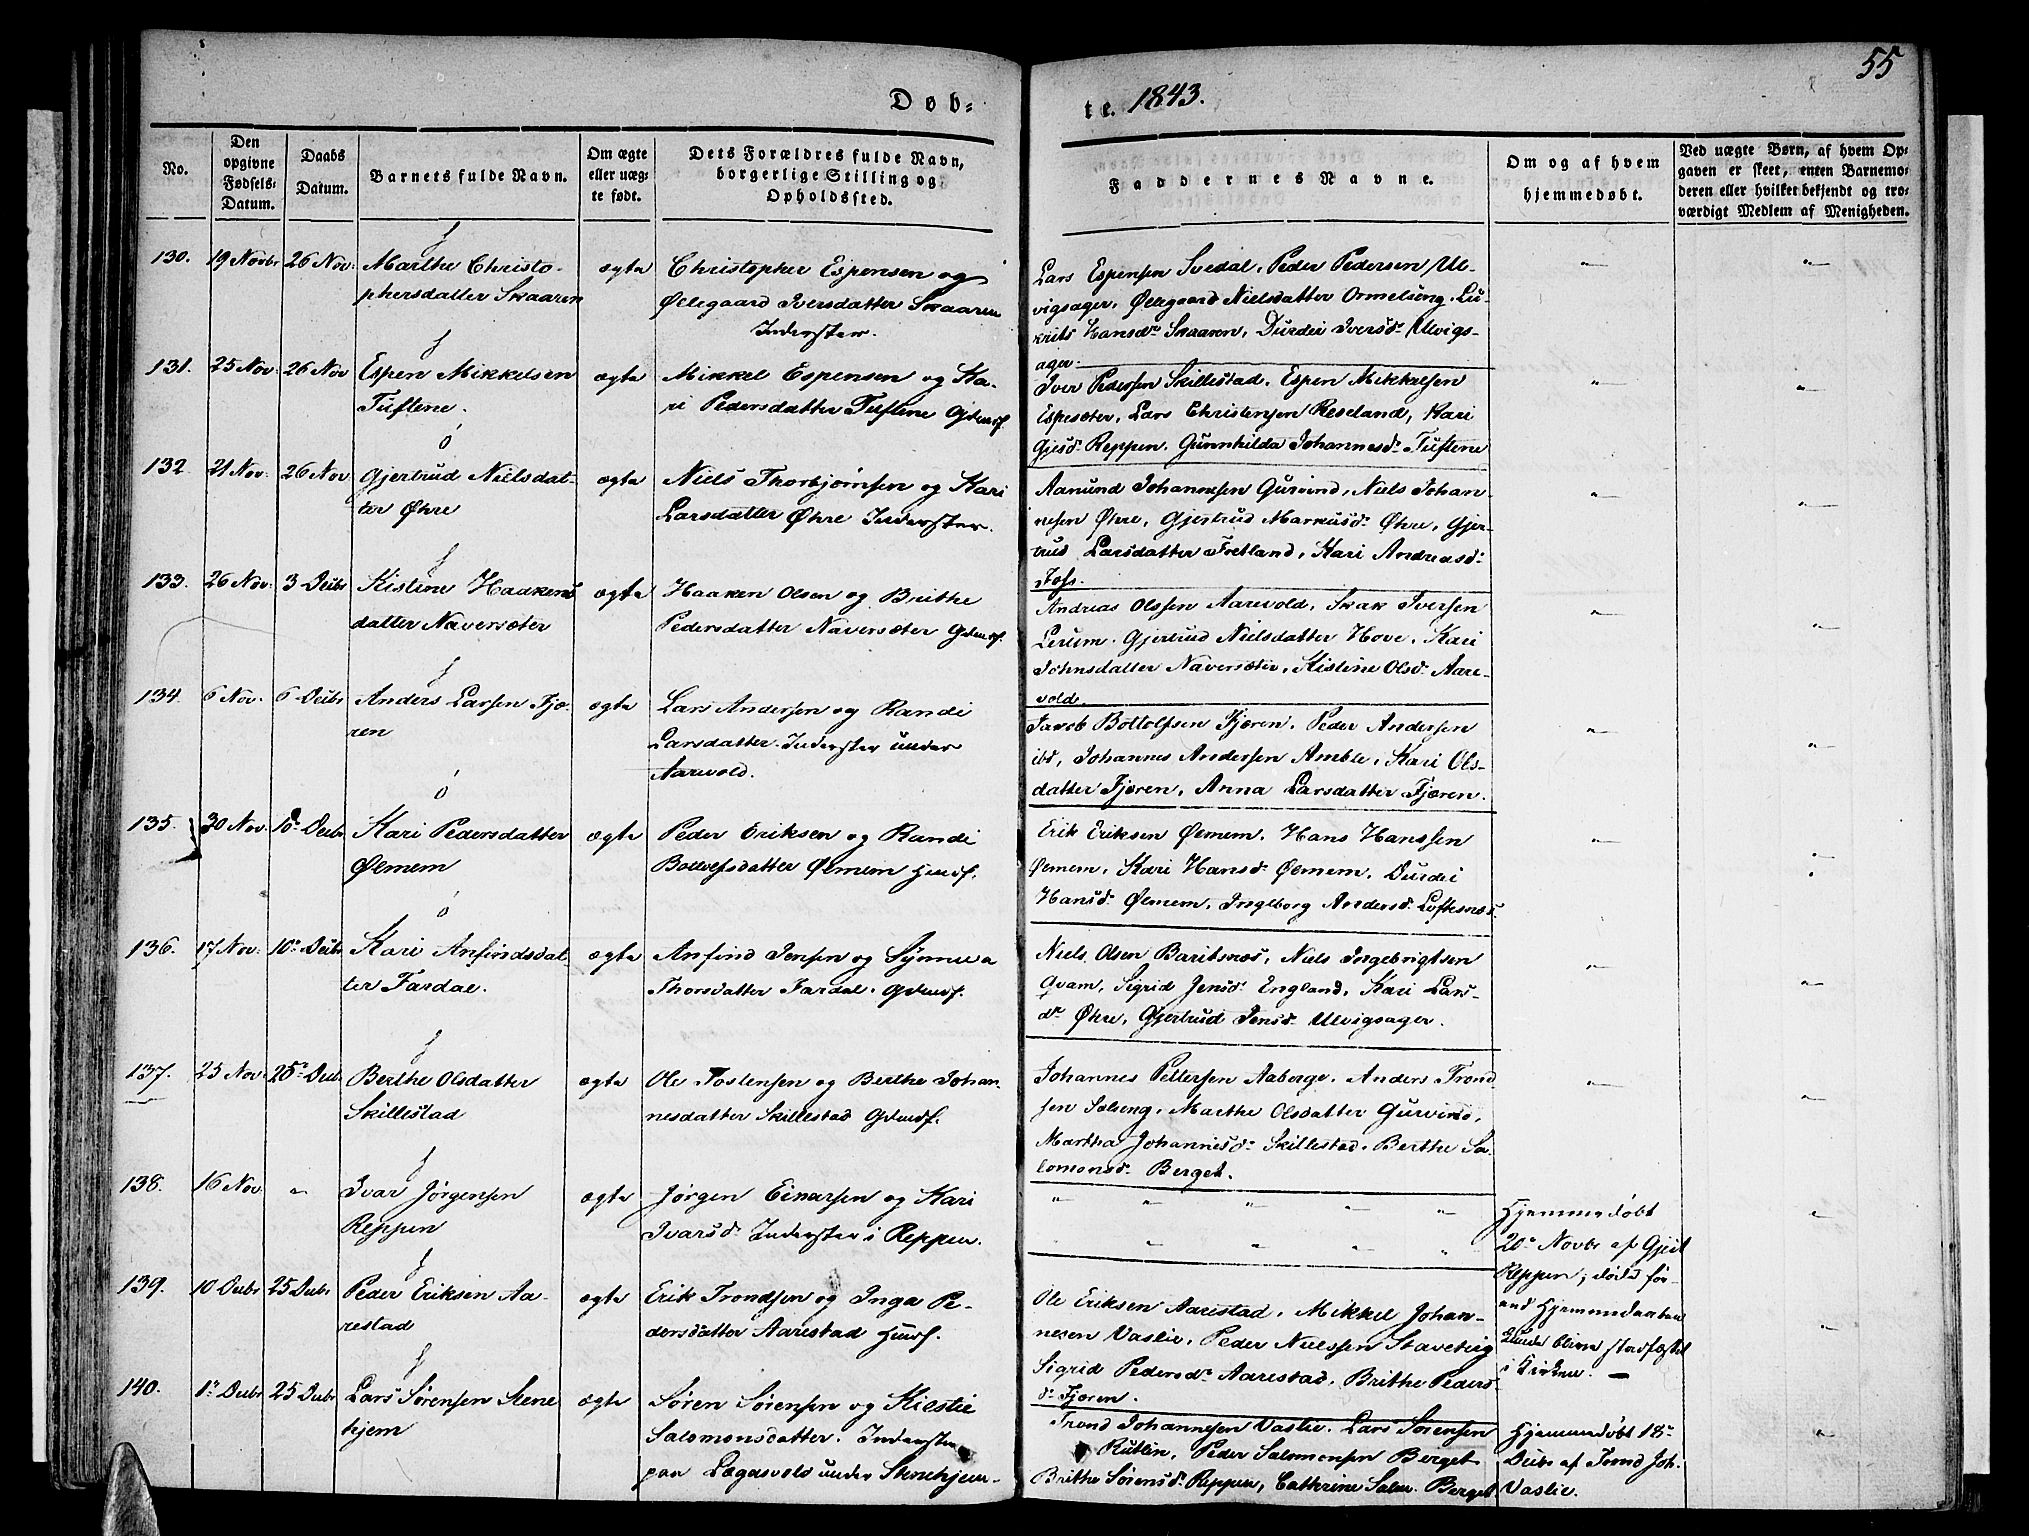 55
Døb-
te. 1843.
No.
Den
opgivne
Fødsels-
Datum.
Daabs
Datum.
Barnets fulde Navn.
Om ægte
eller uæg-
te født.
Dets Forældres fulde Navn,
borgerlige Stilling og
Opholdssted.
Faddernes Navne.
Om og af hvem
hjemmedøbt.
Ved uægte Børn, af hvem Op-
gaven er skeet, enten Barnemo-
deren eller hvilket bekjendt og tro-
værdigt Medlem af Menigheden.
130. 19 Novbr 26 Nov. Marthe Christo-
phersdatter Skaaren
ægte
Christopher Espensen og
Øllegaard Iversdatter Skaaren
Inderster.
Lars Espensen Svedal, Peder Pedersen Ul-
vigsager, Øllegaard Nielsdatter Ormelseng,
Hansdr Skaaren, Durdei Iversd. Ulvigs-
ager.
131. 25 Nov. 26 Nov Espen Mikkelsen
Tuftene.
ægte
Mikkel Espensen og Ka-
ri Pedersdatter Tuftene Gdmdf.
Iver Pedersen Skillestad, Espen Mikkelsen
Espesæter, Lars Christensen Reseland, Kari
Reppen, Gunnhilda Johannesd. Tuftene
132 21 Nov. 26 Nov Gjertrud Nielsdat-
ter Øhre
ægte
Niels Thorbjørnsen og Kari
Larsdatter Øhre Inderster.
Aanund Johannesen Gurvind, Niels Johan-
nesen Øhre, Gjertrud Markusd. Øhre, Gjer-
trud Larsdatter Fretland, Kari Andreasd.
133. 26 Nov. 3 Decbr Kistine Haakens
datter Naversæter
ægte
Haaken Olsen og Brithe
Pedersdatter Naversæter Gdmdf.
Andreas Olssen Aarevold, Isak Iversen
Lerum, Gjertrud Nielsdatter Hove, Kari
Johnsdatter Naversæter, Kistine Olsd. Aare-
vold.
134. 6 Nov. 6 Decbr Anders Larsen Fjæ-
ren
ægte
Lars Andersen og Randi
Larsdatter. Inderster under
Aarevold.
Jacob Bottolfsen Fjæren, Peder Andersen
ibd, Johannes Andersen Amble, Kari Ols-
datter Fjæren, Anna Larsdatter Fjæren.
135. 30 Nov. 10 Decbr Kari Pedersdatter
Ølmem
ægte
Peder Eriksen og Randi
Bottolfsdatter Ølmem Hmdf.
Erik Eriksen Ølmem, Hans Hanssen
Ølmem, Kari Hansd. Ølmem, Durdei
Hansd. Ølmem, Ingeborg Andersd. Loftesnæs.
136. 17 Nov. 10 Decbr Kari Anfindsdat-
ter Fardal.
ægte
Anfind Jensen og Synneva
Thorsdatter Fardal. Gdmdf.
Niels Olsen Baritsnæs, Niels Ingebrigtsen
Qvam, Sigrid Jensd. England, Kari Lars-
dr Øhre, Gjertrud Jensd. Ulvigsager.
137. 25 Nov. 25 Decbr Berthe Olsdatter
Skillestad
ægte
Ole Tostensen og Berthe Johan-
nesdatter Skillestad Gdmdf.
Johannes Pettersen Aaberge, Anders Trond
sen Solseng, Marthe Olsdatter Gurvind,
Martha Johannesd. Skillestad, Berthe Sa-
lomonsd. Berget.
138. 16 Nov. " Ivar Jørgensen
Reppen
ægte
Jørgen Einarsen og Kari
Ivarsd. Inderster i Reppen.
Hjemmedøbt
20 Novbr af Gjeil
Reppen; døde før-
end Hjemmedaaben
kunde blive stadfæstet
i Kirken. —
139. 10 Decbr 25 Decbr Peder Eriksen Aa-
restad
ægte
Erik Trondsen og Inga Pe-
dersdatter Aarestad Hmdf.
Ole Eriksen Aarestad, Mikkel Johan-
nesen Vaslie, Peder Nielssen Staveteig
Sigrid Pedersdr Aarestad, Brithe Peders
dr Fjæren.
140. 1 Decbr 25 Decbr Lars Sørensen Stene
hjem
ægte
Søren Sørensen og Kirstie
Salomonsdatter. Inderster
paa Lægdsvold under Stenehjem.
Trond Johannesen Vaslie, Lars Sørensen
Rutlin, Peder Salomonsen Berget
Brithe Sørensd. Reppen, Cathrine Salm. Berget
Hjemmedøbt 18
Decbr af Trond Joh.
Vaslie.